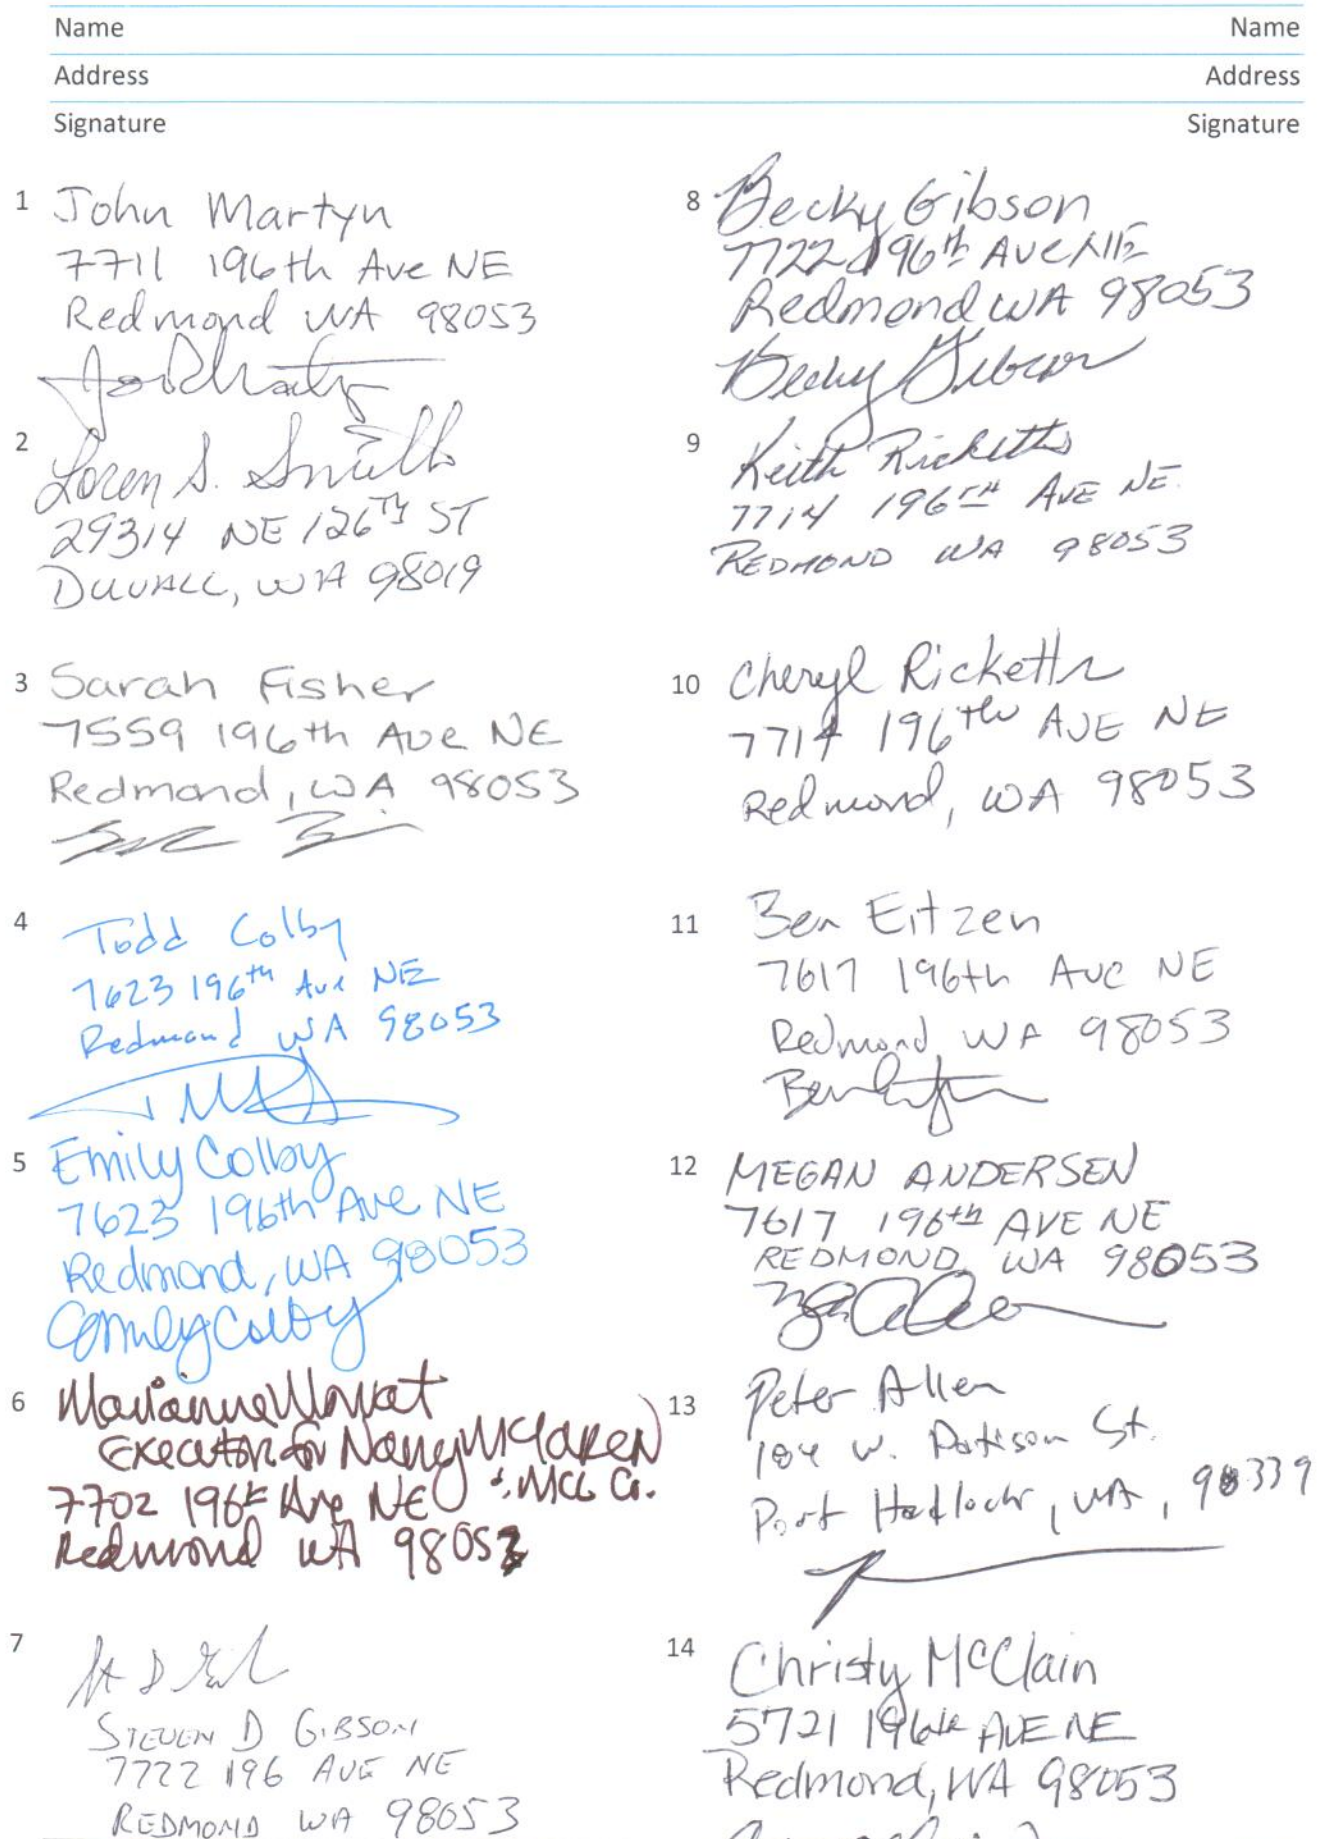 Name Name
Address Address
Signature Signature
1 John Martyn
7711 196th Ave NE
Redmond WA 98053
2 Loren S. Smith
29314 NE 126TH ST
DUVALL, WA 98019
3 Sarah Fisher
7559 196th Ave NE
Redmond, WA 98053
4 Todd Colby
7623 196th Ave NE
Redmond WA 98053
5 Emily Colby
7623 196th Ave NE
Redmond, WA 98053
Emily Colby
6 Marianne
Executor for Nancy McLaren
7702 196th Ave NE
Redmond WA 98053
7
STEVEN D GIBSON
7722 196 AVE NE
REDMOND WA 98053
8 Becky Gibson
7722 196th Ave NE
Redmond WA 98053
Becky Gibson
9 Keith Ricketts
7714 196TH AVE NE
REDMOND WA 98053
10 Cheryl Ricketts
7714 196th AVE NE
Redmond, WA 98053
11 Ben Eitzen
7617 196th Ave NE
Redmond, WA 98053
12 MEGAN ANDERSEN
7617 196th AVE NE
REDMOND, WA 98053
13 Peter Allen
104 W. Patison St.
Port Hadlock, WA, 98339
14 Christy McClain
5721 196th AVE NE
Redmond, WA 98053